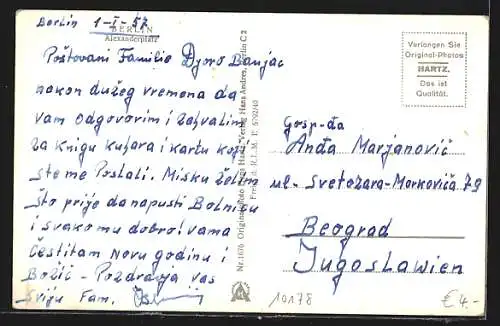 Berlin 1-I-57
BERLIN
Alexanderplatz
Poštovani Familie Djoro Banjac
nakon dužeg vremena da
vam odgovorim i zahvalim
za knigu kuhara i kartu koji
ste me Poslali. Misku želim
što prije da napusti Bolnicu
i svako mu dobro! vama
čestitam Novu godinu i
Božić - Pozdravja vas
sviju Fam.
Nr. 1676 Original-Foto Hugo Hartz - Verlag Hans Andres, Berlin C 2
Verlangen Sie
Original-Photos
HARTZ.
Das ist
Qualität.
Gosp-đa
Anđa Marjanović
ul- Svetozara-Morkoviča 79
Beograd
Jugoslawien
10178
€ 4.-